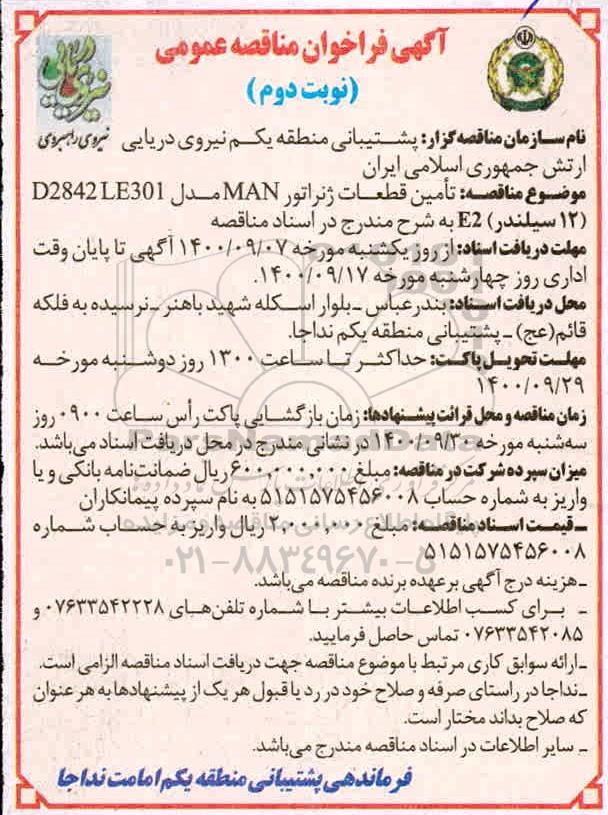 آگهی فراخوان مناقصه عمومی
(نوبت دوم)
نیروی راهبردی
نام سازمان مناقصه‌گزار: پشتیبانی منطقه یکم نیروی دریایی
ارتش جمهوری اسلامی ایران
موضوع مناقصه: تأمین قطعات ژنراتور MAN مدل D2842 LE301
(۱۲ سیلندر) E2 به شرح مندرج در اسناد مناقصه
مهلت دریافت اسناد: از روز یکشنبه مورخه ۱۴۰۰/۰۹/۰۷ آگهی تا پایان وقت
اداری روز چهارشنبه مورخه ۱۴۰۰/۰۹/۱۷.
محل دریافت اسناد: بندرعباس ـ بلوار اسکله شهید باهنر ـ نرسیده به فلکه
قائم(عج) ـ پشتیبانی منطقه یکم نداجا.
مهلت تحویل پاکت: حداکثر تا ساعت ۱۳۰۰ روز دوشنبه مورخه
۱۴۰۰/۰۹/۲۹
زمان مناقصه و محل قرائت پیشنهادها: زمان بازگشایی پاکت رأس ساعت ۰۹۰۰ روز
سه‌شنبه مورخه ۱۴۰۰/۰۹/۳۰ در نشانی مندرج در محل دریافت اسناد می‌باشد.
میزان سپرده شرکت در مناقصه: مبلغ ۶۰۰,۰۰۰,۰۰۰ ریال ضمانت‌نامه بانکی و یا
واریز به شماره حساب ۵۱۵۱۵۷۵۴۵۶۰۰۸ به نام سپرده پیمانکاران
ـ قیمت اسناد مناقصه: مبلغ ۲,۰۰۰,۰۰۰ ریال واریز به حساب شماره
۵۱۵۱۵۷۵۴۵۶۰۰۸
۰۲۱-۸۸۳۴۹۶۷۰-۵
ـ هزینه درج آگهی بر عهده برنده مناقصه می‌باشد.
ـ برای کسب اطلاعات بیشتر با شماره تلفن‌های ۰۷۶۳۳۵۴۲۲۲۸ و
۰۷۶۳۳۵۴۲۰۸۵ تماس حاصل فرمایید.
ـ ارائه سوابق کاری مرتبط با موضوع مناقصه جهت دریافت اسناد مناقصه الزامی است.
ـ نداجا در راستای صرفه و صلاح خود در رد یا قبول هر یک از پیشنهادها به هر عنوان
که صلاح بداند مختار است.
ـ سایر اطلاعات در اسناد مناقصه مندرج می‌باشد.
فرماندهی پشتیبانی منطقه یکم امامت نداجا